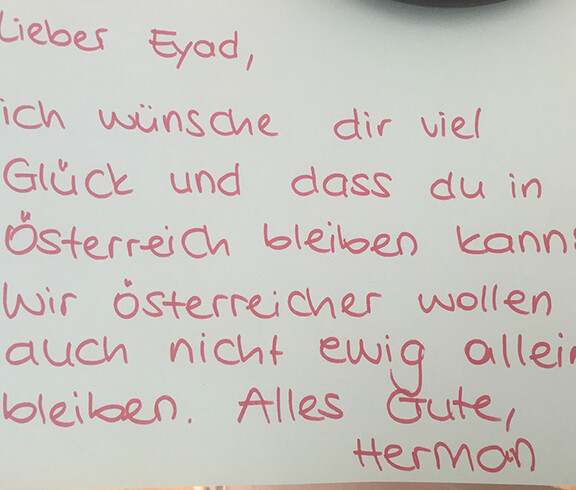 Lieber Eyad,
ich wünsche dir viel
Glück und dass du in
Österreich bleiben kanns
Wir österreicher wollen
auch nicht ewig allein
bleiben. Alles Gute,
Herman